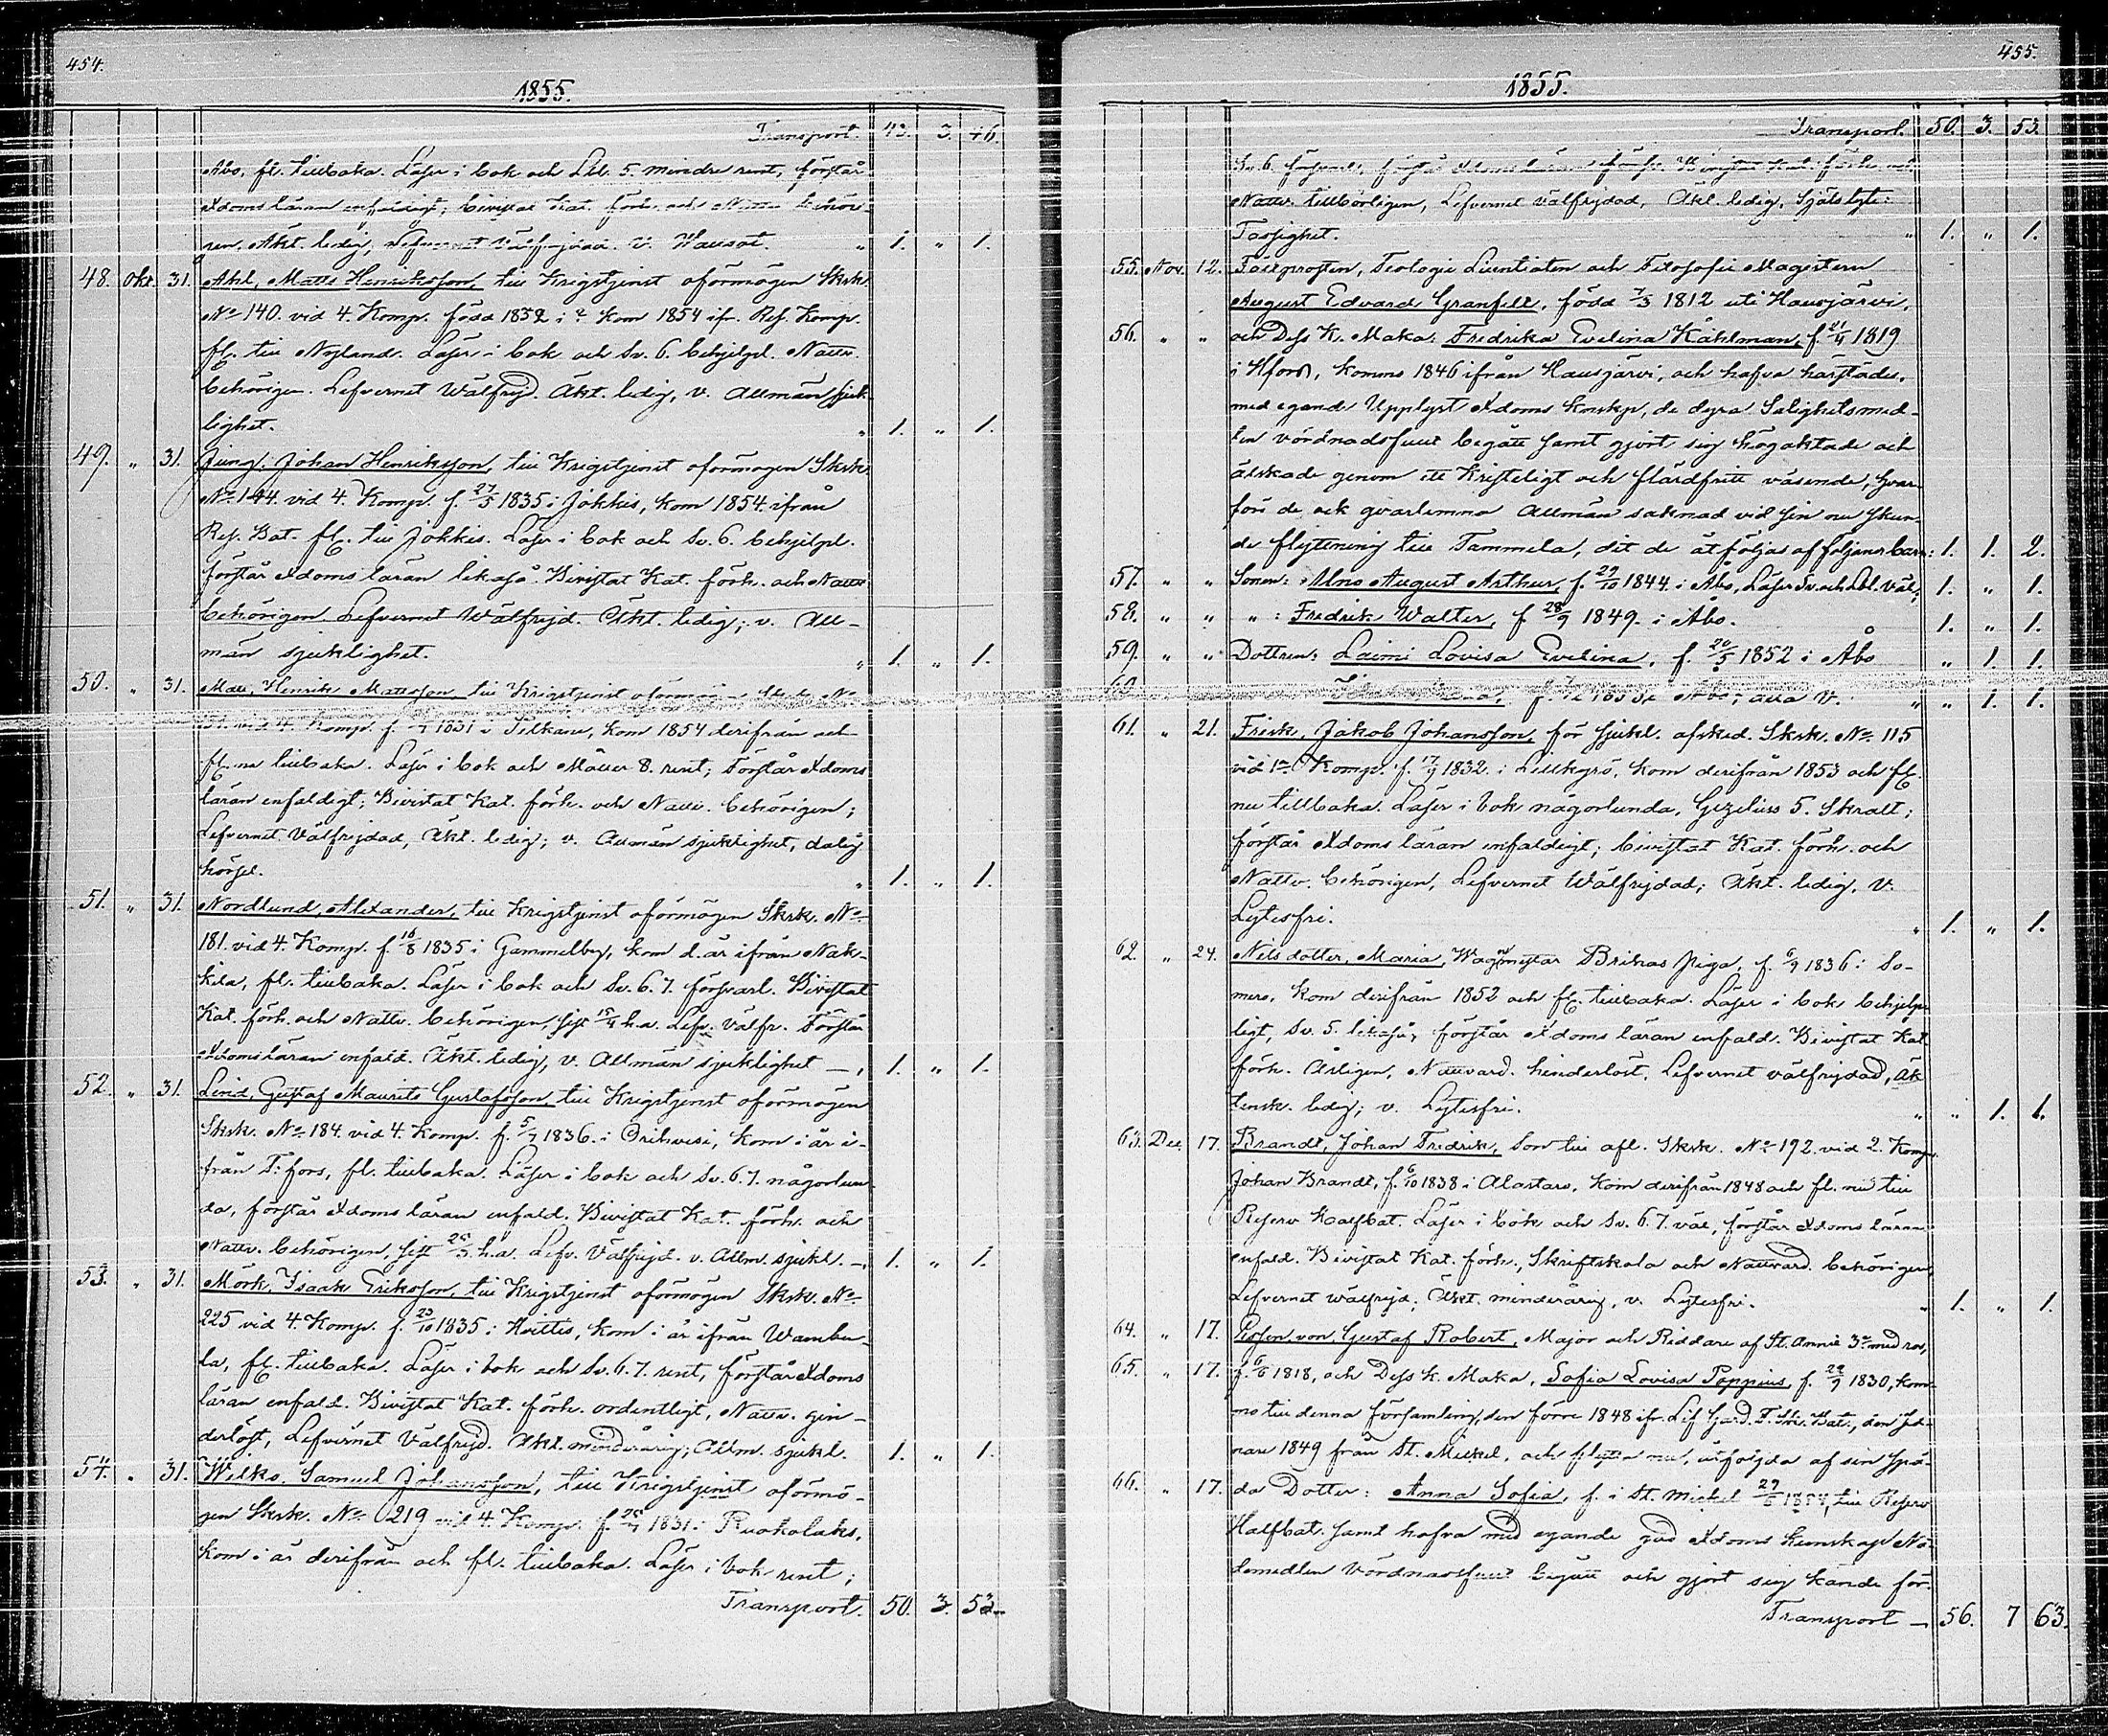 454.
1855.
Transport. 43. 3. 46.
Åbo, fl. tillbaka. Läser i bok och Lel. 5. mindre rent, förstår
Xdoms läran enfaldigt; bivistat Kat. förh. och behöri-
gen, Äkt. ledig, Lefvernet Välfrejdad. V. " 1. " 1.
48. Okt. 31. Ahl, Matts Henriksson, till Krigstjenst oförmögen Skrk.
No 140. vid 4. Komp. född 1832 i ? kom 1854 ifr. Res. Komp.
fl. till Nyland. Läser i bok och Sv. 6. behjelpl. Nattv.
behörigen. Lefvernet Wälfrejd. Äkt. ledig, v. Allmän sjuk-
lighet. " 1. " 1.
49. " 31. Jung, Johan Henriksson, till Krigstjenst oförmögen Skrk.
No 144. vid 4. Komp. f. 27/5 1835 i Jokkis, kom 1854. ifrån
Res. Bat. fl. till Jokkis. Läser i bok och Sv. 6. behjelpl.
förstår Xdoms läran likaså. Bivistat Kat. förh. och Nattv.
behörigen. Lefvernet Wälfrejd. Äkt. ledig; v. All-
män sjuklighet. " 1. " 1.
50. " 31. Mall, Henrik Mattsson, till Krigstjenst oförmögen Skrk. No
vid 4. Komp. f. 1831 i kom 1854 derifrån och
fl. nu tillbaka. Läser i bok och Möller 8. rent; Förstår Xdoms
läran enfaldigt; Bivistat Kat. förh. och Nattv. behörigen;
Lefvernet Välfrejdad, Äkt. ledig; v. Allmän sjuklighet, dålig
hörsel. " 1. " 1.
51. " 31. Nordlund, Alexander, till Krigstjenst oförmögen Skrk. No
181. vid 4. Komp. f. 16/8 1835 i Gammelby, kom d. år ifrån Nak-
kila, fl. tillbaka. Läser i bok och Sv. 6. 7. försvarl. Bivistat
Kat. förh. och Nattv. behörigen, sist 15/4 h.a. Lefv. Välfr. Förstår
Xdomsläran enfald. Äkt. ledig, v. Allmän sjuklighet —, 1. " 1.
52. " 31. Lind, Gustaf Maurits Gustafsson, till Krigstjenst oförmögen
Skrk. No 184. vid 4. Komp. f. 5/7 1836. i Orihvesi, kom i år i-
från T:fors, fl. tillbaka. Läser i bok och Sv. 6. 7. någorlun-
da, förstår Xdoms läran enfald. Bivistat Kat. förh. och
Nattv. behörigen, sist 25/3 h.a. Lefv. Välfrejd. v. Allm. sjukl. —, 1. " 1.
53. " 31. Mörk, Isaak Eriksson, till Krigstjenst oförmögen Skrk. No
225 vid 4. Komp. f. 23/10 1835 i Hvittis, kom i år ifrån Wambu-
la, fl. tillbaka. Läser i bok och Sv. 6. 7. rent, förstår Xdoms
läran enfald. Bivistat Kat. förh. ordentligt, Nattv. gin-
derlöst, Lefvernet Välfrejd. Äkt. minderårig; Allm. sjukl. 1. " 1.
54. " 31. Wilks, Samuel Johansson, till Krigstjenst oförmö-
gen Skrk. No 219 vid 4. Komp. f. 25/7 1831. i Ruokolaks,
kom i år derifrån och fl. tillbaka. Läser i bok rent;
Transport. 50. 3. 53.
455.
1855.
Transport. 50. 3. 53.
Sv. 6. försvarl., förstår Xdoms läran Bivistat Kat. förh. och
Nattv. tillbörligen, Lefvernet välfrejdad, Äkt. ledig, Själslyte:
Tossighet. " 1. " 1.
55. Nov. 12. Fältprosten, Teologie Licentiaten och Filosofie Magistern
August Edvard Granfelt, född 7/3 1812 uti Hausjärvi,
56. " " och Dess K. Maka, Fredrika Evelina Kåhlman, f. 21/4 1819
i Hfors, komne 1846 ifrån Hausjärvi, och hafva härstädes,
med egande Upplyst Xdoms knskp, de dyra Salighetsmed-
len vördnadsfullt begått samt gjort sig högaktade och
älskade genom ett Kristeligt och flärdfritt väsende, hvar-
före de ock qvarlemna Allmän saknad vid sin nu sken-
de flyttning till Tammela, dit de åtföljas af följande barn: 1. 1. 2.
57. " " Sonen: Uno August Arthur, f. 29/10 1844. i Åbo, Läser Sv. och Lel. väl, 1. " 1.
58. " " " : Fredrik Walter, f 28/9 1849. i Åbo. 1. " 1.
59. " " Dottren: Laimi Lovisa Evelina, f. 20/5 1852 i Åbo " 1. 1.
60. f. i Åbo; alla v. " " 1. 1.
61. " 21. Frisk, Jakob Johansson, för sjukl. afsked. Skrk. No. 115
vid 1a Komp. f. 17/9 1832. i Lillkyrö, kom derifrån 1853 och fl.
nu tillbaka. Läser i bok någorlunda, Gezelius 5. Skralt;
förstår Xdoms läran enfaldigt; bivistat Kat. förh. och
Nattv. behörigen, Lefvernet Wälfrejdad; Äkt. ledig, V.
Lytesfri. " 1. " 1.
62. " 24. Nilsdotter, Maria, Wagnmästar Brikas piga, f. 6/9 1836 i So-
mero, kom derifrån 1852 och fl. tillbaka. Läser i bok behjelp-
ligt, Sv. 5. likaså, förstår Xdoms läran enfald. Bivistat Kat.
förh. Årligen, Nattvard. hinderlöst, Lefvernet välfrejdad, Äk
tensk. ledig; v. Lytesfri. " " 1. 1.
63. Dec. 17. Brandt, Johan Fredrik, Son till afl. Skrk. No 192. vid 2. Komp.
Johan Brandt, f. 6/10 1838 i Alastaro, kom derifrån 1848 och fl. nu till
Reserv Halfbat. Läser i bok och Sv. 6. 7. väl, förstår Xdoms läran
enfald. Bivistat Kat. förh., Skriftskola och Nattvard. behörigen,
Lefvernet wälfrejd; Äkt. minderårig, v. Lytesfri. " 1. " 1.
64. " 17. von, Gustaf Robert, Major och Riddare af St. Annæ 3e med ros,
65. " 17. f. 6/6 1818, och Dess K. Maka, Sofia Lovisa Poppius, f. 22/9 1830, kom-
ne till denna församling, den förre 1848 ifr. Lif Gard. F. Bat., den sed-
nare 1849 från St. Mickel, och flytta nu, åtföljda af sin spä-
66. " 17. da Dotter: Anna Sofia, f. i St. Michel 1854, till Reserv
Halfbat. samt hafva med egande god Xdoms kunskap Nå-
demedlen vördnadsfullt begått och gjort sig kände för
Transport — 56. 7 63.